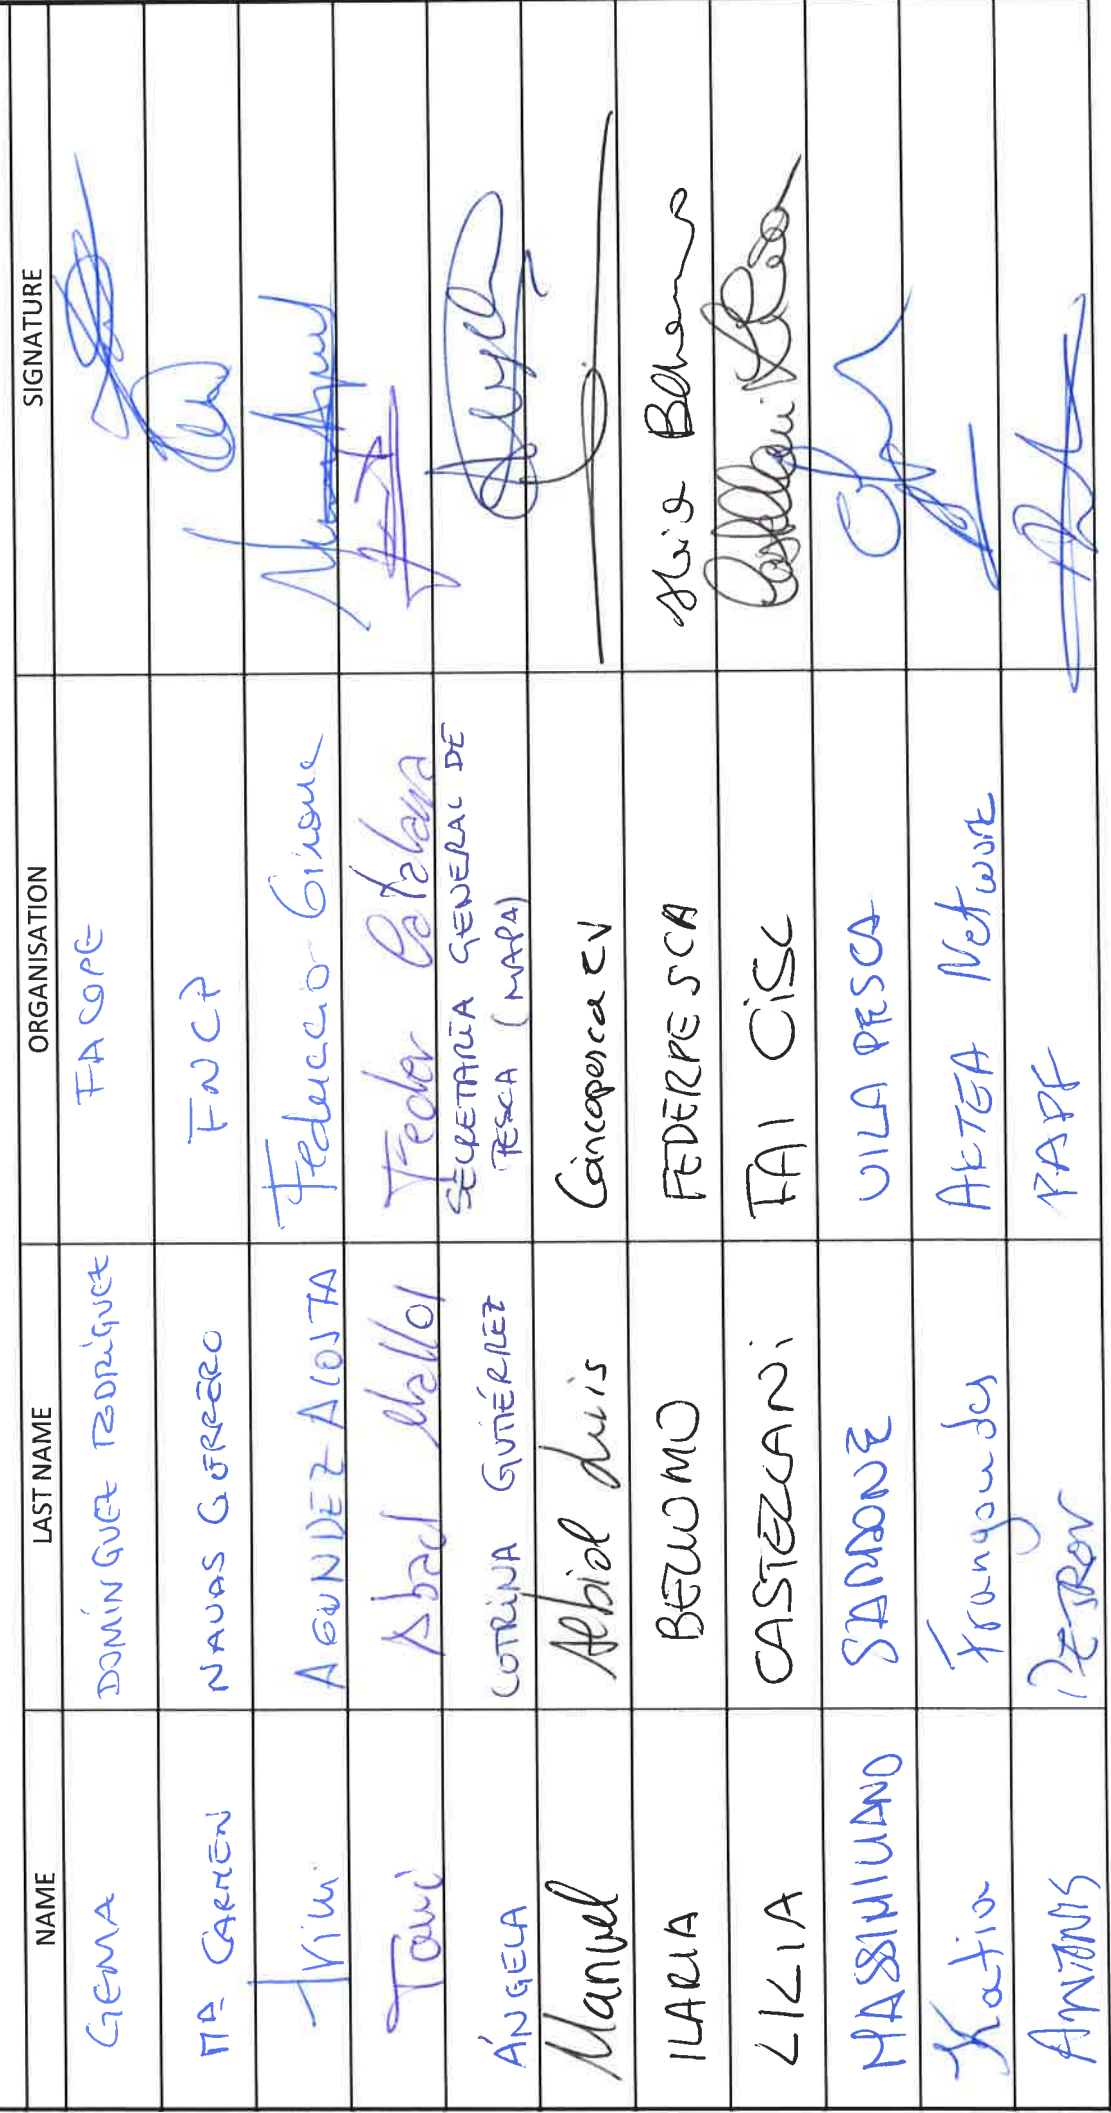 NAME LAST NAME ORGANISATION SIGNATURE
GEMA DOMÍNGUEZ RODRÍGUEZ FACOPE
Mª CARMEN NAVAS GUERRERO FNCP
Trini AGUNDEZ ACOSTA Federació Girona
Toni Abad Mallol Feder Catalana
ÁNGELA COTRINA GUTIÉRREZ SECRETARÍA GENERAL DE
PESCA (MAPA)
Manuel Albiol Luis Concopesca CV
ILARIA BELLOMO FEDERPESCA Ilaria Bellomo
LILIA CASTELLANI FAI CISL Castellani
MASSIMILIANO SARDONE VILA PESCA
Katia Frangoudes AKTEA Network
ANTONIS PETROU PAPF